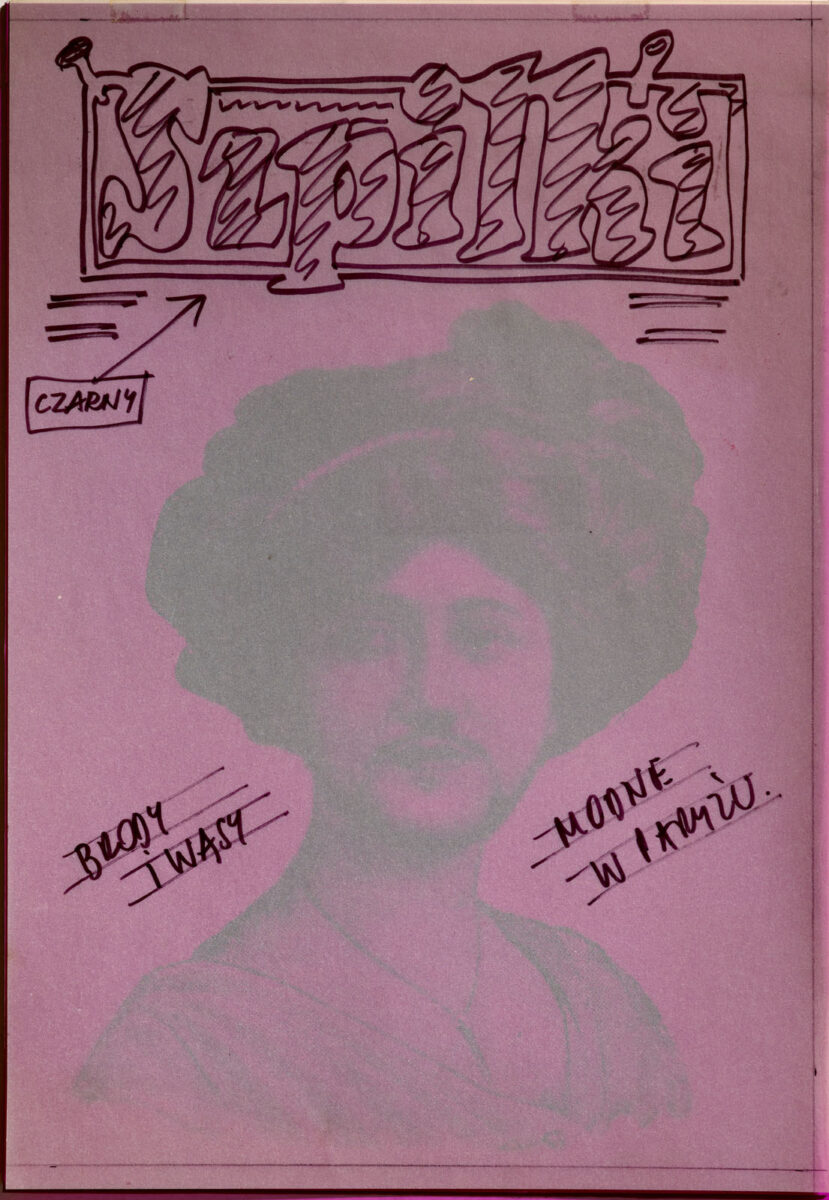 Szpilki
CZARNY
BRODY
I WĄSY
MODNE
W PARYŻU.